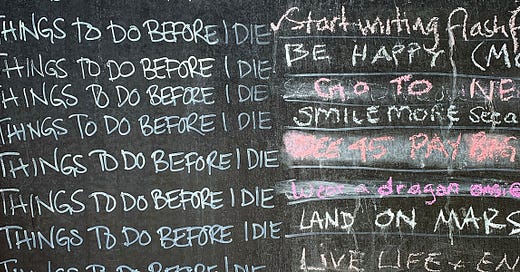 THINGS TO DO BEFORE I DIE Start writing flash
THINGS TO DO BEFORE I DIE BE HAPPY (MO
THINGS TO DO BEFORE I DIE GO TO NE
THINGS TO DO BEFORE I DIE SMILE MORE
THINGS TO DO BEFORE I DIE 45 PAY
THINGS TO DO BEFORE I DIE a dragon
THINGS TO DO BEFORE I DIE LAND ON MARS
THINGS TO DO BEFORE I DIE LIVE LIFE + EN